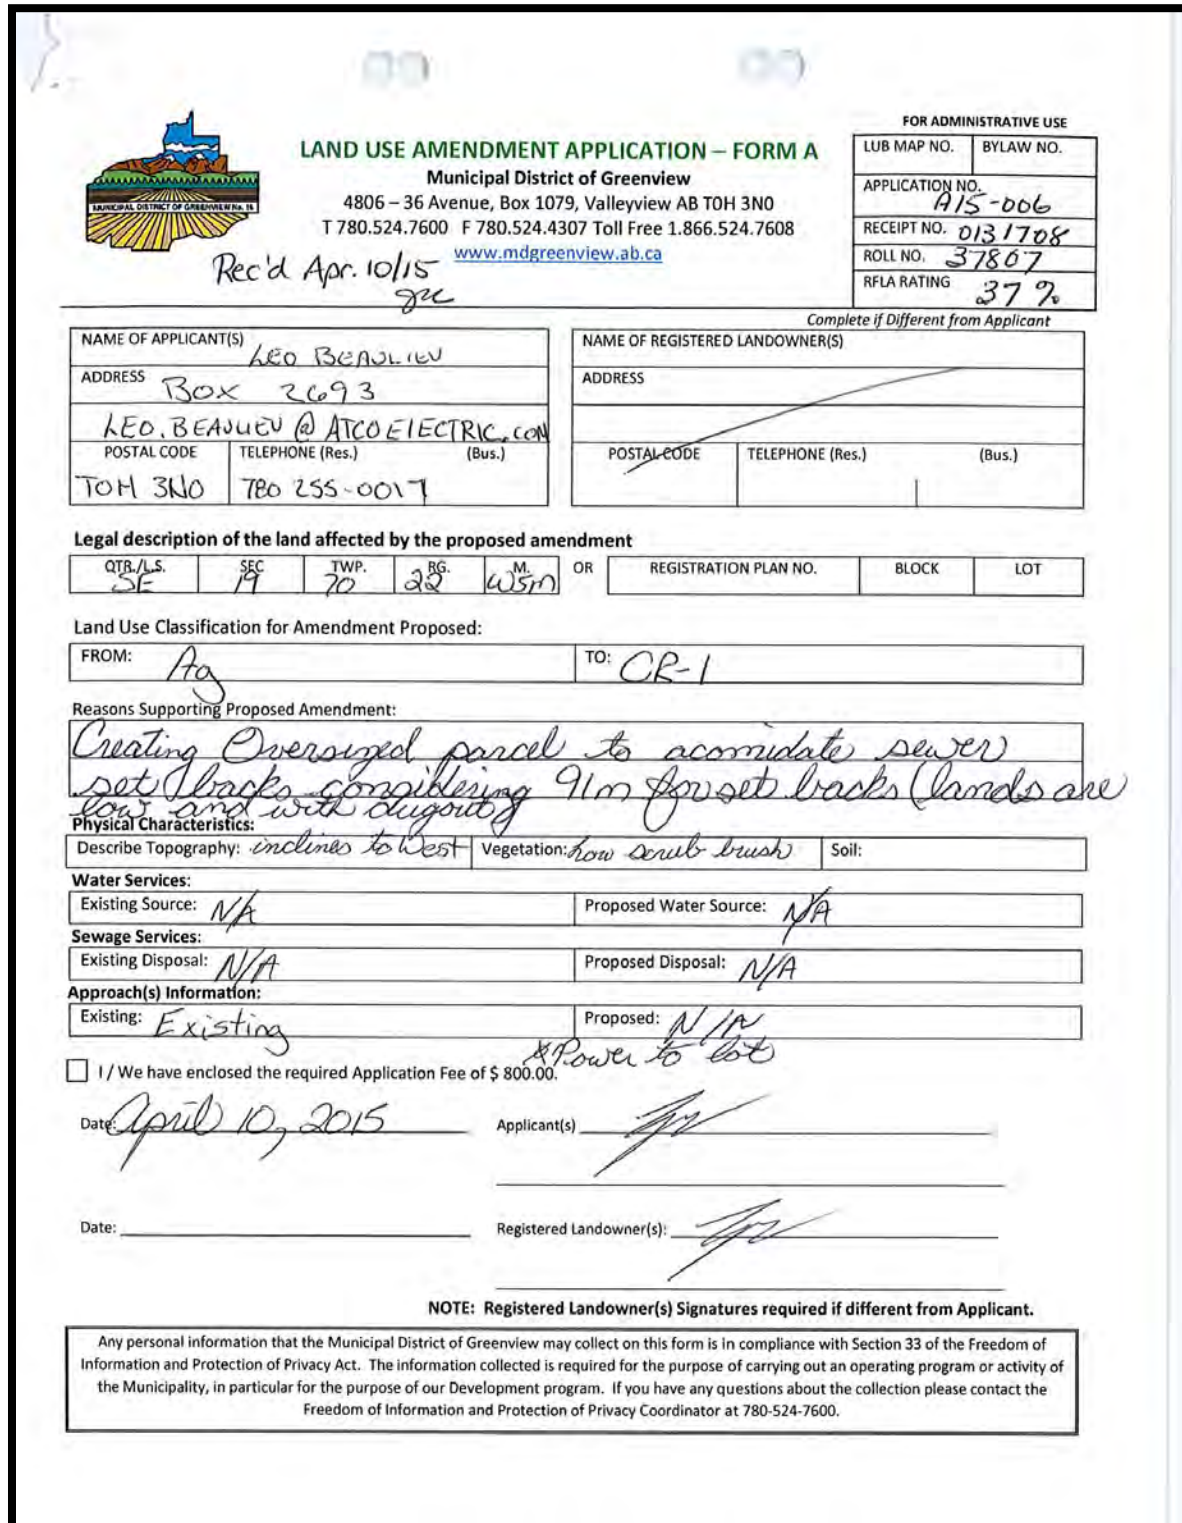 FOR ADMINISTRATIVE USE
LUB MAP NO. BYLAW NO.
APPLICATION NO. A15-006
RECEIPT NO. 0131708
ROLL NO. 37807
RFLA RATING 37%
MUNICIPAL DISTRICT OF GREENVIEW No. 16
LAND USE AMENDMENT APPLICATION – FORM A
Municipal District of Greenview
4806 – 36 Avenue, Box 1079, Valleyview AB T0H 3N0
T 780.524.7600 F 780.524.4307 Toll Free 1.866.524.7608
www.mdgreenview.ab.ca
Rec'd Apr. 10/15
Complete if Different from Applicant
NAME OF APPLICANT(S) LEO BEAULIEU
ADDRESS BOX 2693
LEO.BEAULIEU@ATCOELECTRIC.COM
POSTAL CODE TELEPHONE (Res.) (Bus.)
TOH 3N0 780 255-0017
NAME OF REGISTERED LANDOWNER(S)
ADDRESS
POSTAL CODE TELEPHONE (Res.) (Bus.)
Legal description of the land affected by the proposed amendment
QTR./L.S. SEC TWP. RG. M. OR REGISTRATION PLAN NO. BLOCK LOT
SE 19 70 22 W5m
Land Use Classification for Amendment Proposed:
FROM: Ag TO: CR-1
Reasons Supporting Proposed Amendment:
Creating Oversized parcel to acomidate sewer
set backs considering 91m for set backs (lands are
low and with dugout)
Physical Characteristics:
Describe Topography: inclines to West Vegetation: Low scrub brush Soil:
Water Services:
Existing Source: N/A Proposed Water Source: N/A
Sewage Services:
Existing Disposal: N/A Proposed Disposal: N/A
Approach(s) Information:
Existing: Existing Proposed: N/A
*Power to lot
I / We have enclosed the required Application Fee of $ 800.00.
Date: April 10, 2015 Applicant(s)
Date: Registered Landowner(s):
NOTE: Registered Landowner(s) Signatures required if different from Applicant.
Any personal information that the Municipal District of Greenview may collect on this form is in compliance with Section 33 of the Freedom of
Information and Protection of Privacy Act. The information collected is required for the purpose of carrying out an operating program or activity of
the Municipality, in particular for the purpose of our Development program. If you have any questions about the collection please contact the
Freedom of Information and Protection of Privacy Coordinator at 780-524-7600.